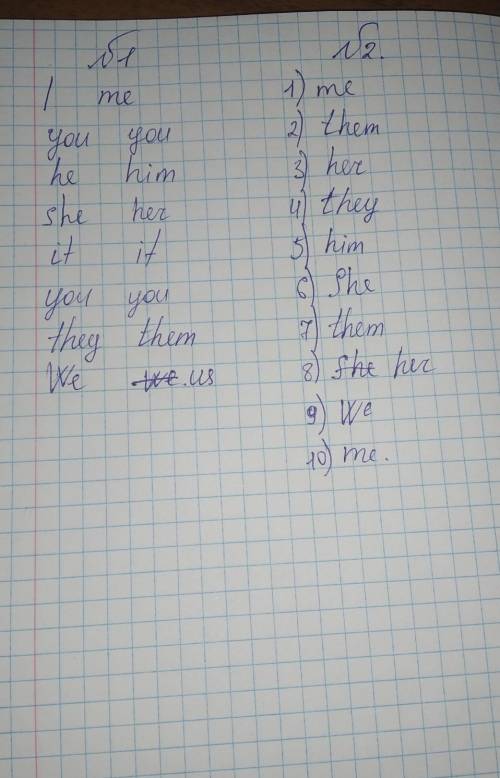 №1
I me
you you
he him
she her
it it
you you
they them
We we.us
№2.
1) me
2) them
3) her
4) they
5) him
6) She
7) them
8) She her
9) We
10) me.